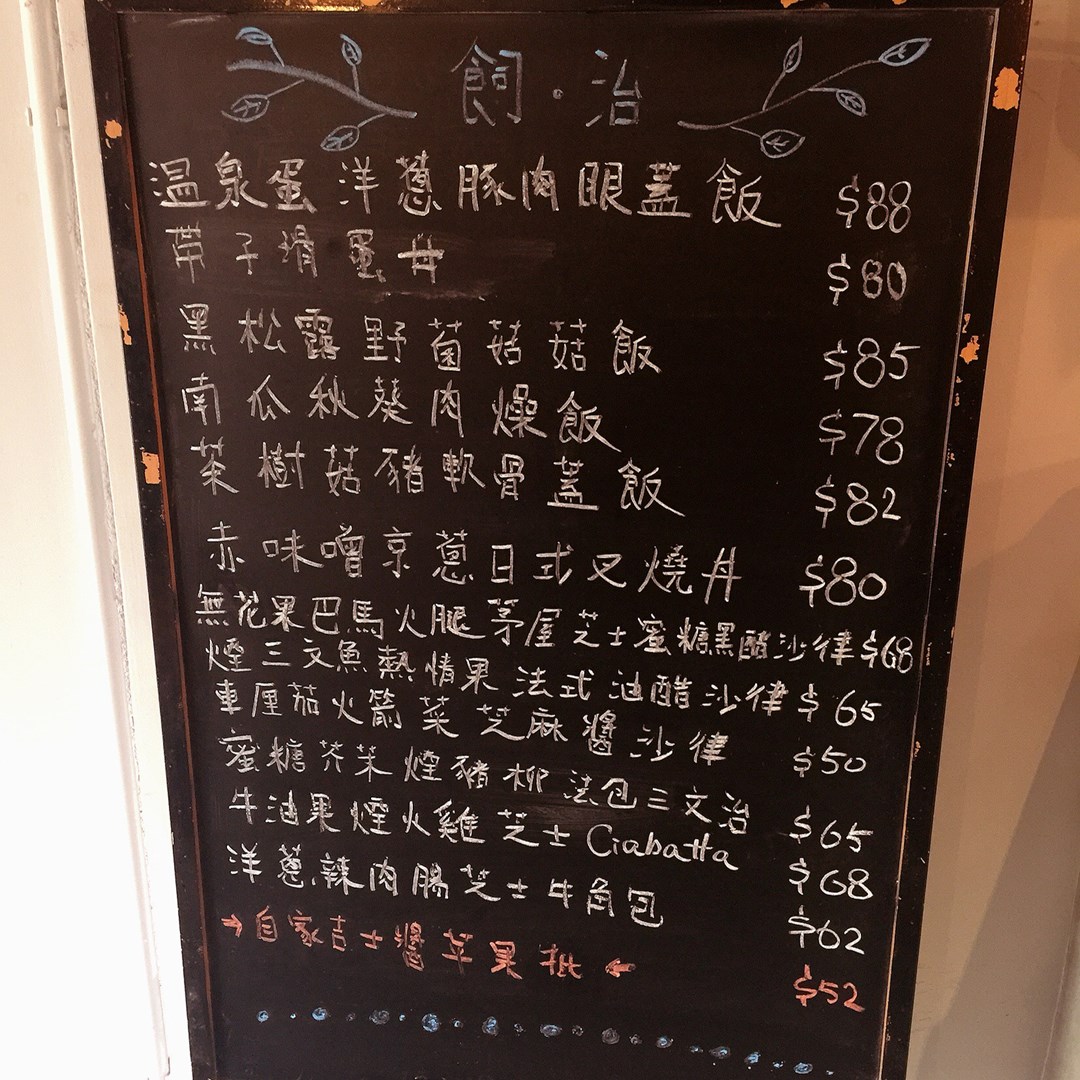 飼·治
温泉蛋洋蔥豚肉眼蓋飯 $88
帶子滑蛋丼 $80
黑松露野菌菇菇飯 $85
南瓜秋葵肉燥飯 $78
茶樹菇豬軟骨蓋飯 $82
赤味噌京蔥日式叉燒丼 $80
無花果巴馬火腿茅屋芝士蜜糖黑醋沙律 $68
煙三文魚熱情果法式油醋沙律 $65
車厘茄火箭菜芝麻醬沙律 $50
蜜糖芥茉煙豬柳法包三文治 $65
牛油果煙火雞芝士Ciabatta $68
洋蔥辣肉腸芝士牛角包 $62
→自家吉士醬苹果批← $52